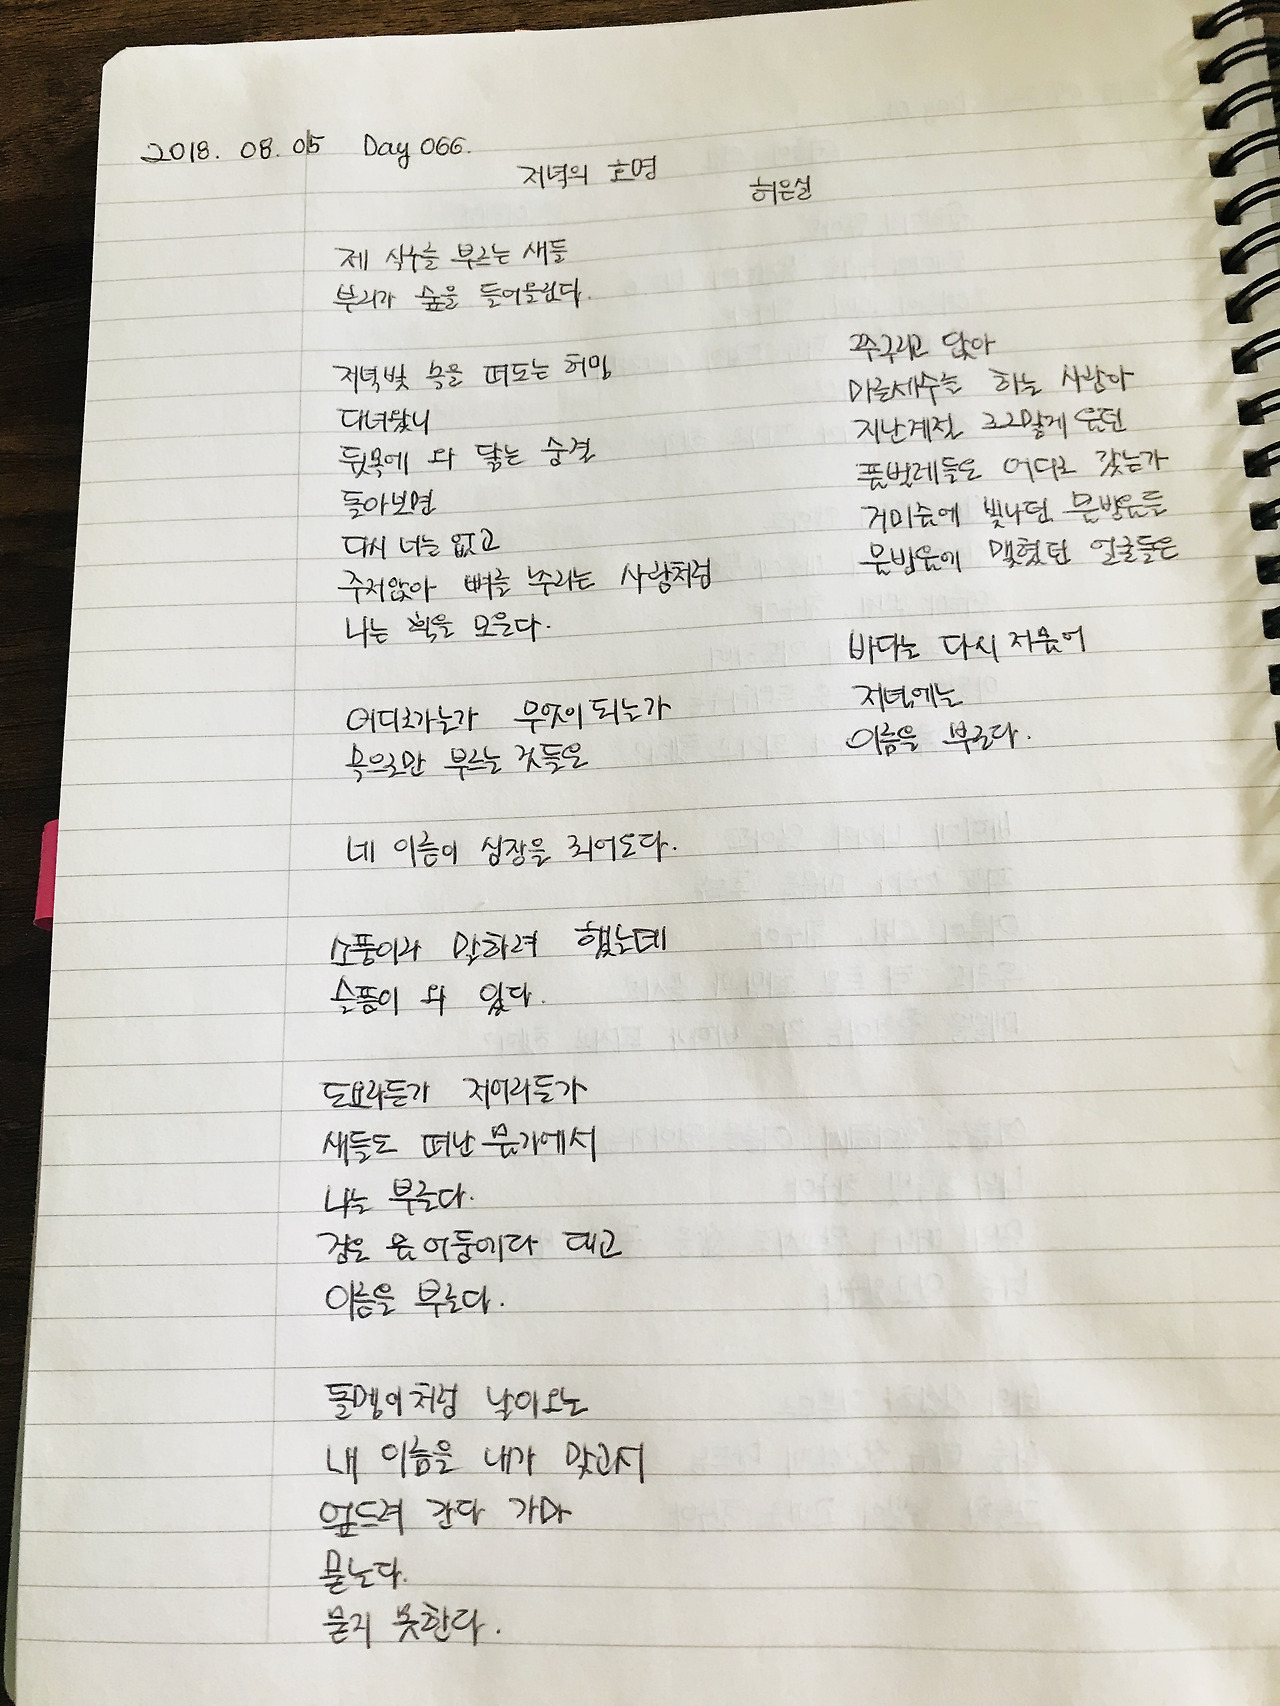 2018. 08. 05 Day 066.
저녁의 호명
허은실
제 식구를 부르는 새들
부리가 숲을 들어올린다.
저녁빛 속을 떠도는 허밍
다녀왔니
뒷목에 와 닿는 숨결
돌아보면
다시 너는 없고
주저앉아 뼈를 추리는 사람처럼
나는 획을 모은다.
어디로가는가 무엇이 되는가
속으로만 부르는 것들은
네 이름이 심장을 죄어온다.
소풍이라 말하려 했는데
슬픔이 와 있다.
도요라든가 저어라든가
새들도 떠난 물가에서
나는 부른다.
검은 물 어둠에다 대고
이름을 부른다.
돌멩이처럼 날아오는
내 이름을 내가 맞고서
엎드려 간다 가마
묻는다.
묻지 못한다.
쭈그리고 앉아
마른세수를 하는 사람아
지난계절 조그맣게 울던
풀벌레들은 어디로 갔는가
거미줄에 빛나던 물방울들
물방울에 맺혔던 얼굴들은
바다는 다시 저물어
저녁에는
이름을 부른다.